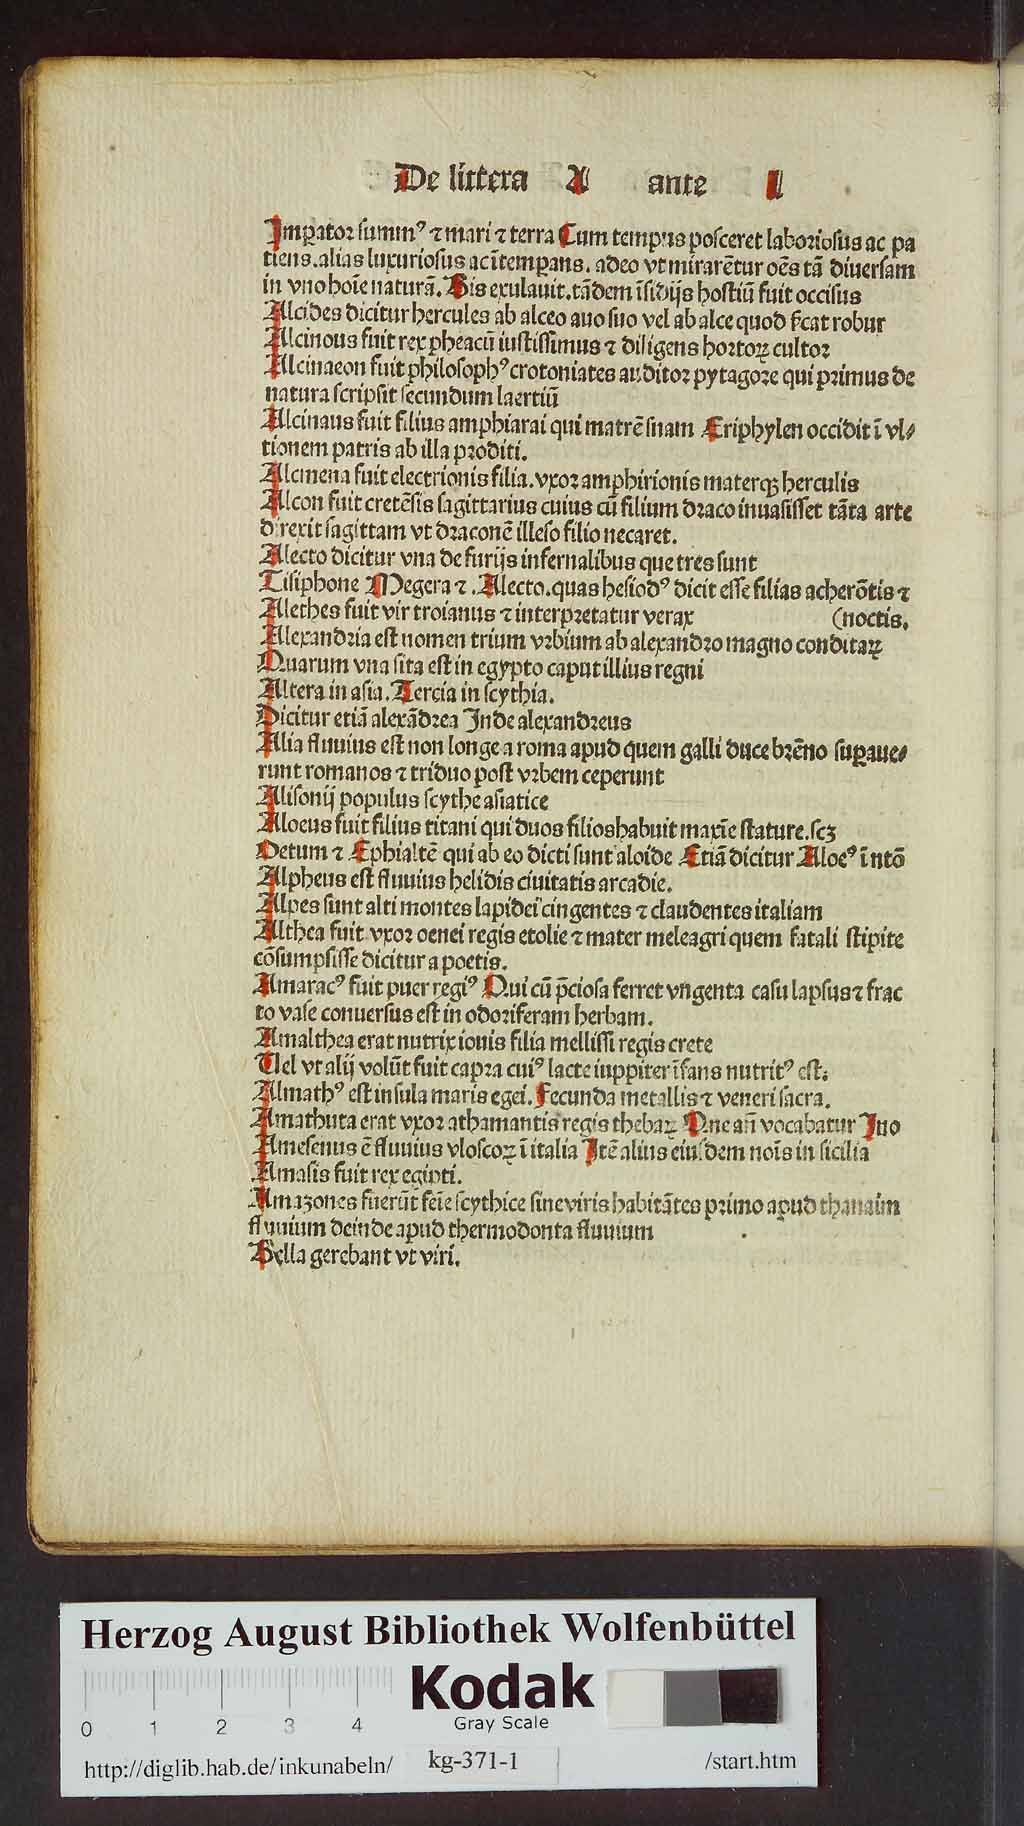 De littera A ante l
Imꝑator summꝰ ⁊ mari ⁊ terra Cum tempus posceret laboriosus ac pa
tiens. alias luxuriosus ac ītemꝑans. adeo vt mirarētur oēs tā diuersam
in vno hoīe naturā. Bis exulauit. tādem īsidijs hostiū fuit occisus
Alcides dicitur hercules ab alceo auo suo vel ab alce quod fcat robur
Alcinous fuit rex pheacū iustissimus ⁊ diligens hortoꝝ cultor
Alcinaeon fuit philosophꝰ crotoniates auditor pytagore qui primus de
natura scripsit secundum laertiū
Alcinaus fuit filius amphiarai qui matrē suam Eriphylen occidit ī vl⸗
tionem patris ab illa proditi.
Alcmena fuit electrionis filia. vxor amphirionis materqꝫ herculis
Alcon fuit cretēsis sagittarius cuius cū filium draco inuasisset tāta arte
direxit sagittam vt draconē illeso filio necaret.
Alecto dicitur vna de furijs infernalibus que tres sunt
Tisiphone Megera ⁊. Alecto. quas hesiodꝰ dicit esse filias acherōtis ⁊
Alethes fuit vir troianus ⁊ interpretatur verax (noctis.
Alexandria est nomen trium vrbium ab alexandro magno conditaꝝ
Quarum vna sita est in egypto caput illius regni
Altera in asia. Tercia in scythia.
Dicitur etiā alexādrea Inde alexandreus
Alia fluuius est non longe a roma apud quem galli duce brēno suꝑaue⸗
runt romanos ⁊ triduo post vrbem ceperunt
Alisonij populus scythe asiatice
Aloeus fuit filius titani qui duos filios habuit maxīe stature. scꝫ
Oetum ⁊ Ephialtē qui ab eo dicti sunt aloide Etiā dicitur Aloeꝰ ī ntō
Alpheus est fluuius helidis ciuitatis arcadie.
Alpes sunt alti montes lapidei cingentes ⁊ claudentes italiam
Althea fuit vxor oenei regis etolie ⁊ mater meleagri quem fatali stipite
cōsumpsisse dicitur a poetis.
Amaracꝰ fuit puer regiꝰ Qui cū p̄ciosa ferret vngenta casu lapsus ⁊ frac
to vase conuersus est in odoriferam herbam.
Amalthea erat nutrix iouis filia mellissi regis crete
Uel vt alij volūt fuit capra cuiꝰ lacte iuppiter īfans nutritꝰ est:
Almathꝰ est insula maris egei. Fecunda metallis ⁊ veneri sacra.
Amathuta erat vxor athamantis regis thebaꝝ Que an̄ vocabatur Ino
Amesenus ē fluuius vloscoꝝ ī italia Itē alius eiusdem noīs in sicilia
Amasis fuit rex egipti.
Amazones fuerūt feīe scythice sine viris habitātes primo apud thanaim
fluuium deinde apud thermodonta fluuium
Bella gerebant vt viri.
Herzog August Bibliothek Wolfenbüttel
Kodak
Gray Scale
0 1 2 3 4
http://diglib.hab.de/inkunabeln/ kg-371-1 /start.htm